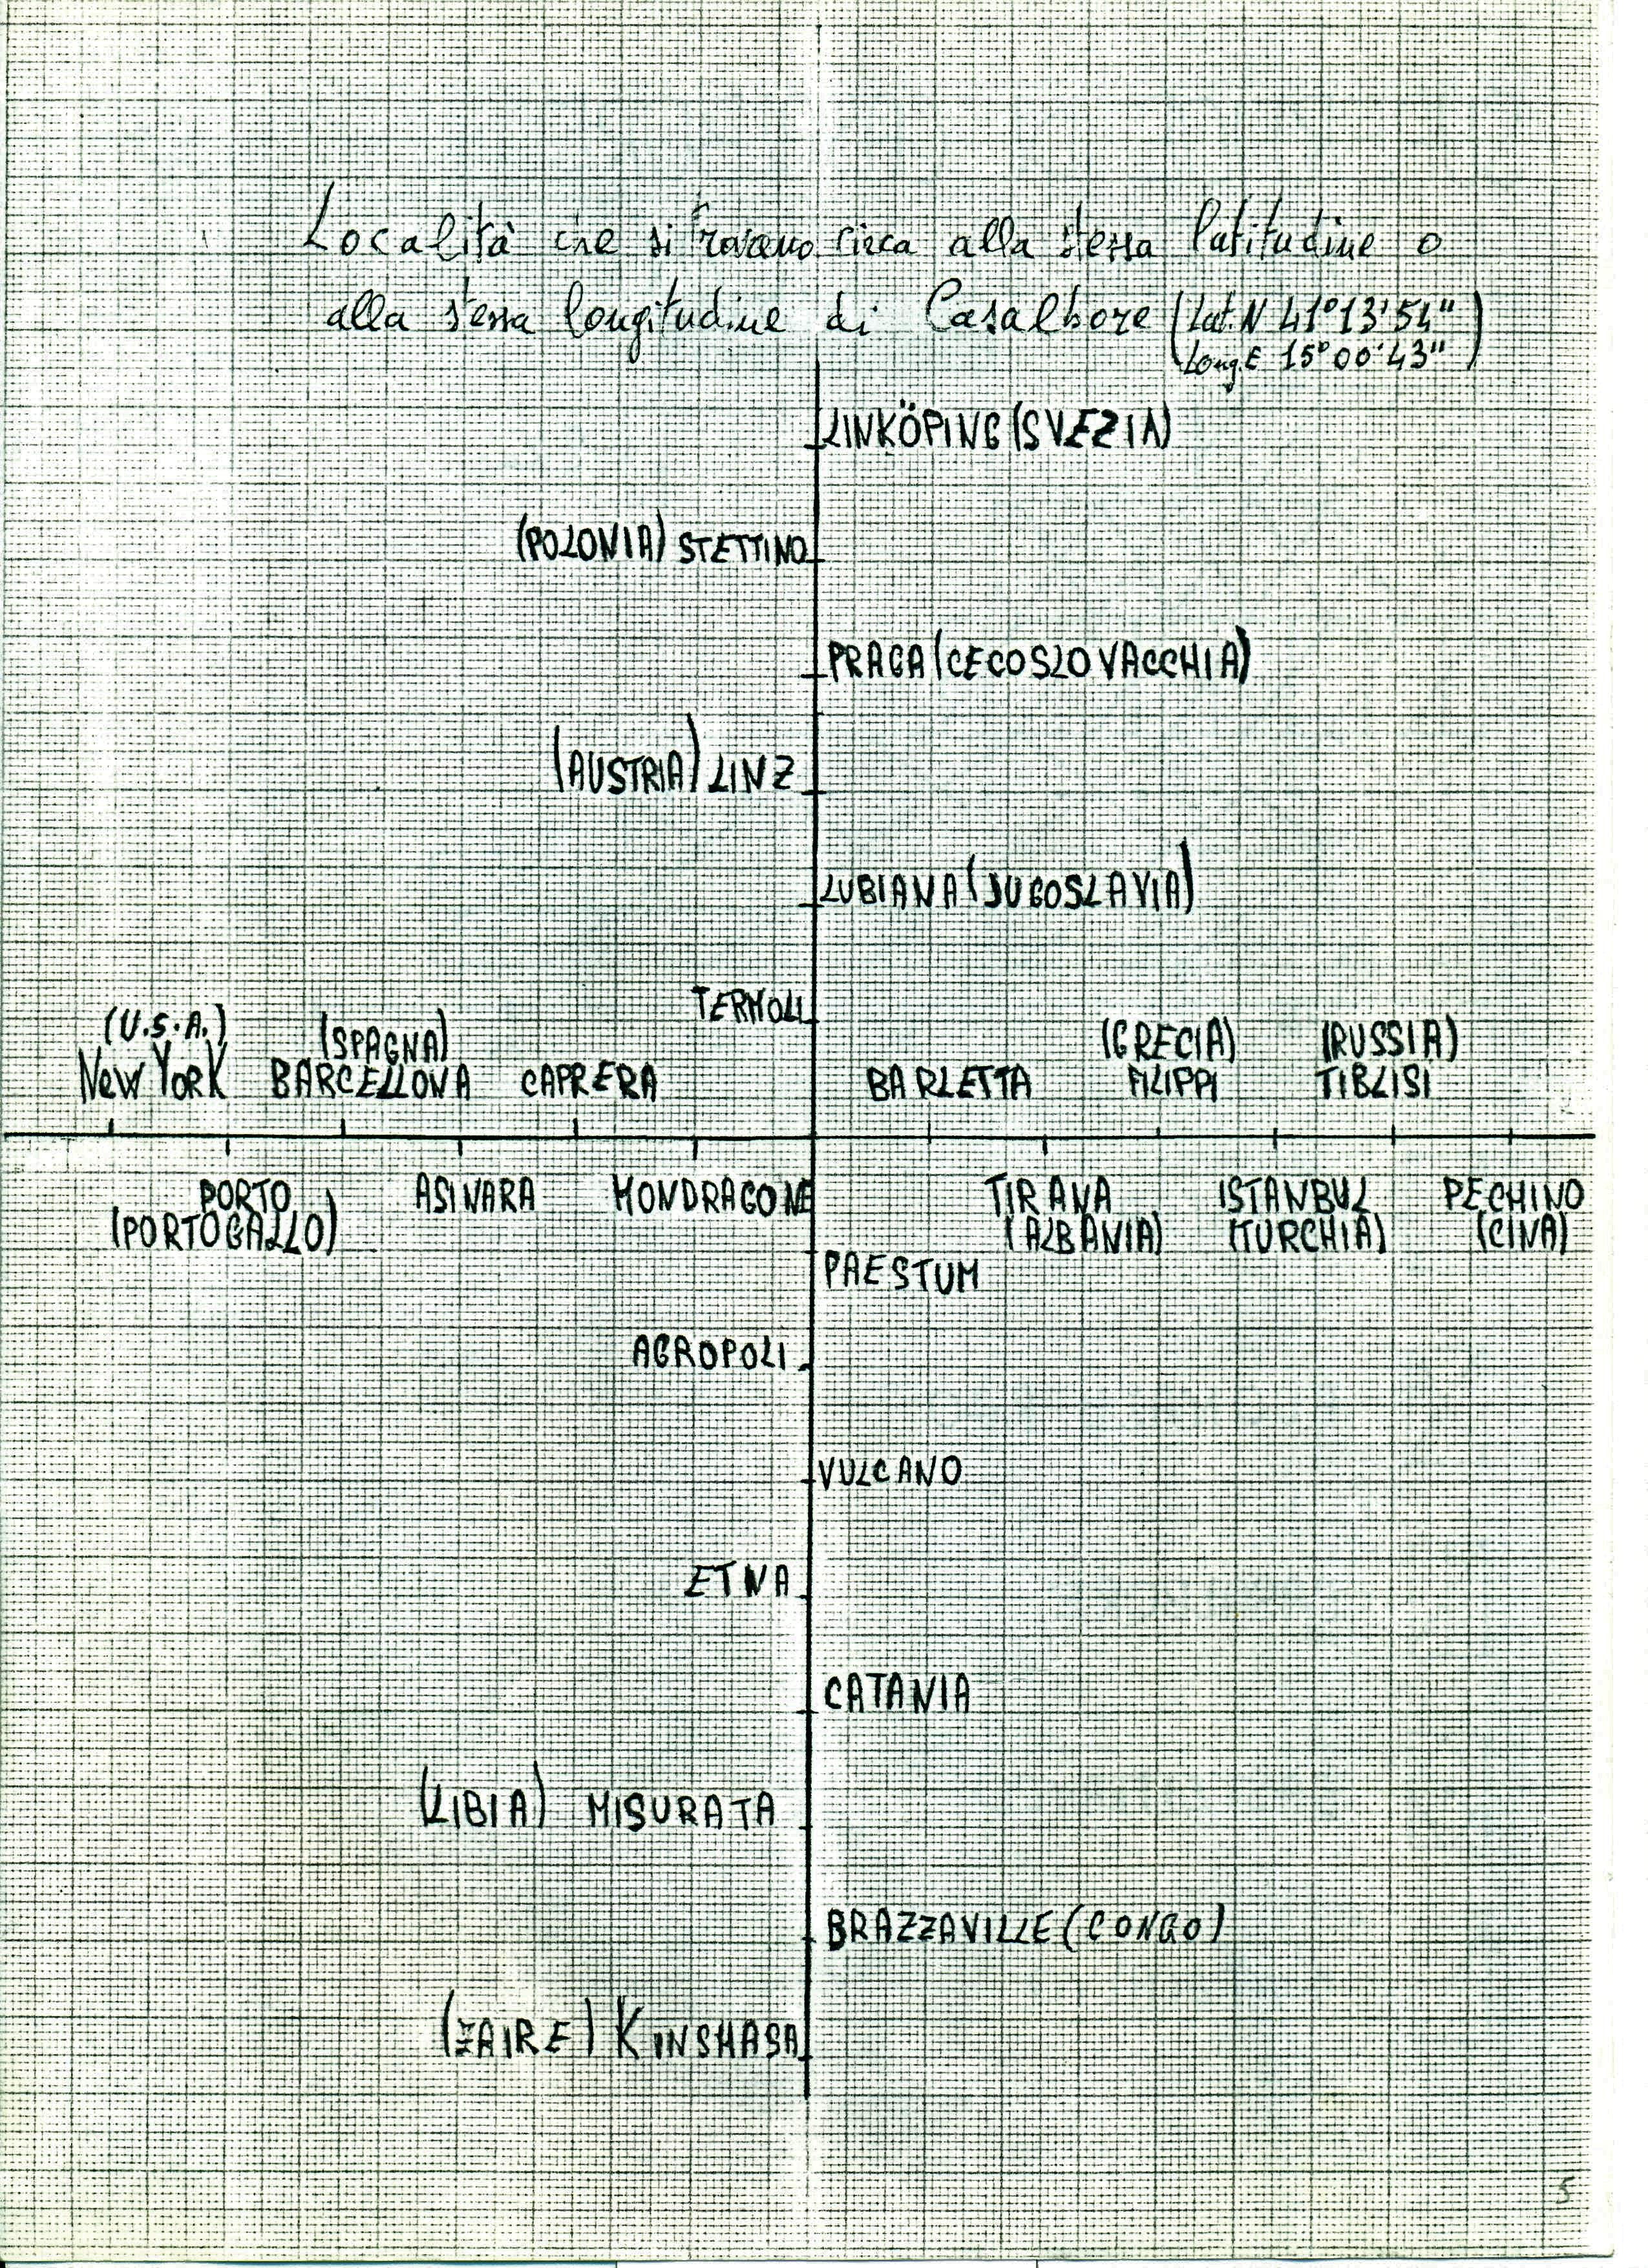 Località che si trovano circa alla stessa latitudine o
alla stessa longitudine di Casalbore (Lat. N 41°13'54"
Long. E 15°00'43")
LINKÖPING (SVEZIA)
(POLONIA) STETTINO
PRAGA (CECOSLOVACCHIA)
(AUSTRIA) LINZ
LUBIANA (JUGOSLAVIA)
TERMOLI
(U.S.A.) (SPAGNA) (GRECIA) (RUSSIA)
New York BARCELLONA CAPRERA BARLETTA FILIPPI TIBLISI
PORTO ASINARA MONDRAGONE TIRANA ISTANBUL PECHINO
(PORTOGALLO) (ALBANIA) (TURCHIA) (CINA)
PAESTUM
AGROPOLI
VULCANO
ETNA
CATANIA
(LIBIA) MISURATA
BRAZZAVILLE (CONGO)
(ZAIRE) KINSHASA
5